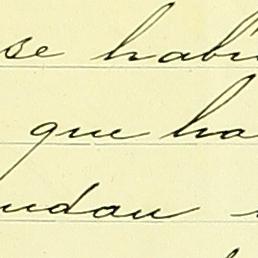 se habi
que ha
udau